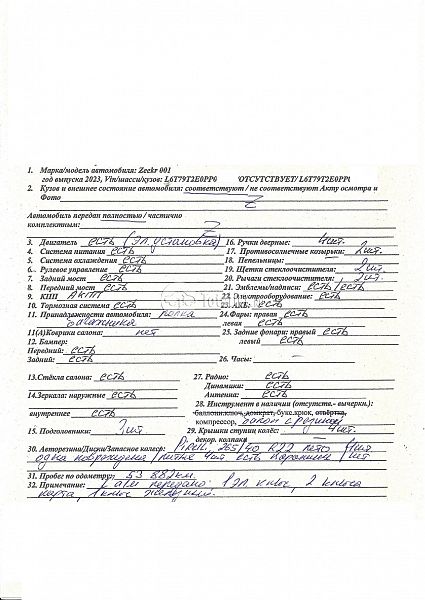 1. Марка/модель автомобиля: Zeekr 001
год выпуска 2023, Vin/шасси/кузов: L6T79T2E0PP0 ОТСУТСТВУЕТ/ L6T79T2E0PP
2. Кузов и внешнее состояние автомобиля: соответствуют / не соответствуют Акту осмотра и
Фото
Автомобиль передан полностью / частично
комплектным:
3. Двигатель есть (эл. установка)
4. Система питания есть
5. Система охлаждения есть
6. Рулевое управление есть
7. Задний мост есть
8. Передний мост есть
9. КПП АКПП
10. Тормозная система есть
11. Принадлежности автомобиля: полка
багажника
11(А)Коврики салона: нет
12. Бампер:
Передний: есть
Задний: есть
13.Стёкла салона: есть
14.Зеркала: наружные есть
внутреннее есть
15. Подголовники: 5 шт
16. Ручки дверные: 4 шт.
17. Противосолнечные козырьки: 2 шт.
18. Пепельницы: —
19. Щетки стеклоочистителя: 2 шт
20. Рычаги стеклоочистителя: 2 шт.
21. Эмблемы/надписи: есть /есть
22. Электрооборудование: есть
23. АКБ: есть
24.Фары: правая есть
левая есть
25. Задние фонари: правый есть
левый есть
26. Часы: —
27. Радио: есть
Динамики: есть
Антенна: есть
28. Инструмент в наличии (отсутств.- вычерки.):
баллонн.ключ, домкрат, букс.крюк, отвёртка,
компрессор, балон с резиной
29. Крышки ступиц колёс: 4 шт.
декор. колпаки —
30. Авторезина/Диски/Запасное колесо: Pirelli, 265/40 R22 лето 4 шт
одна повреждена / литые 4 шт есть
31. Пробег по одометру: 53 882 км.
32. Примечание: 1 эл ключ, 2 ключа
карта, 1 ключ